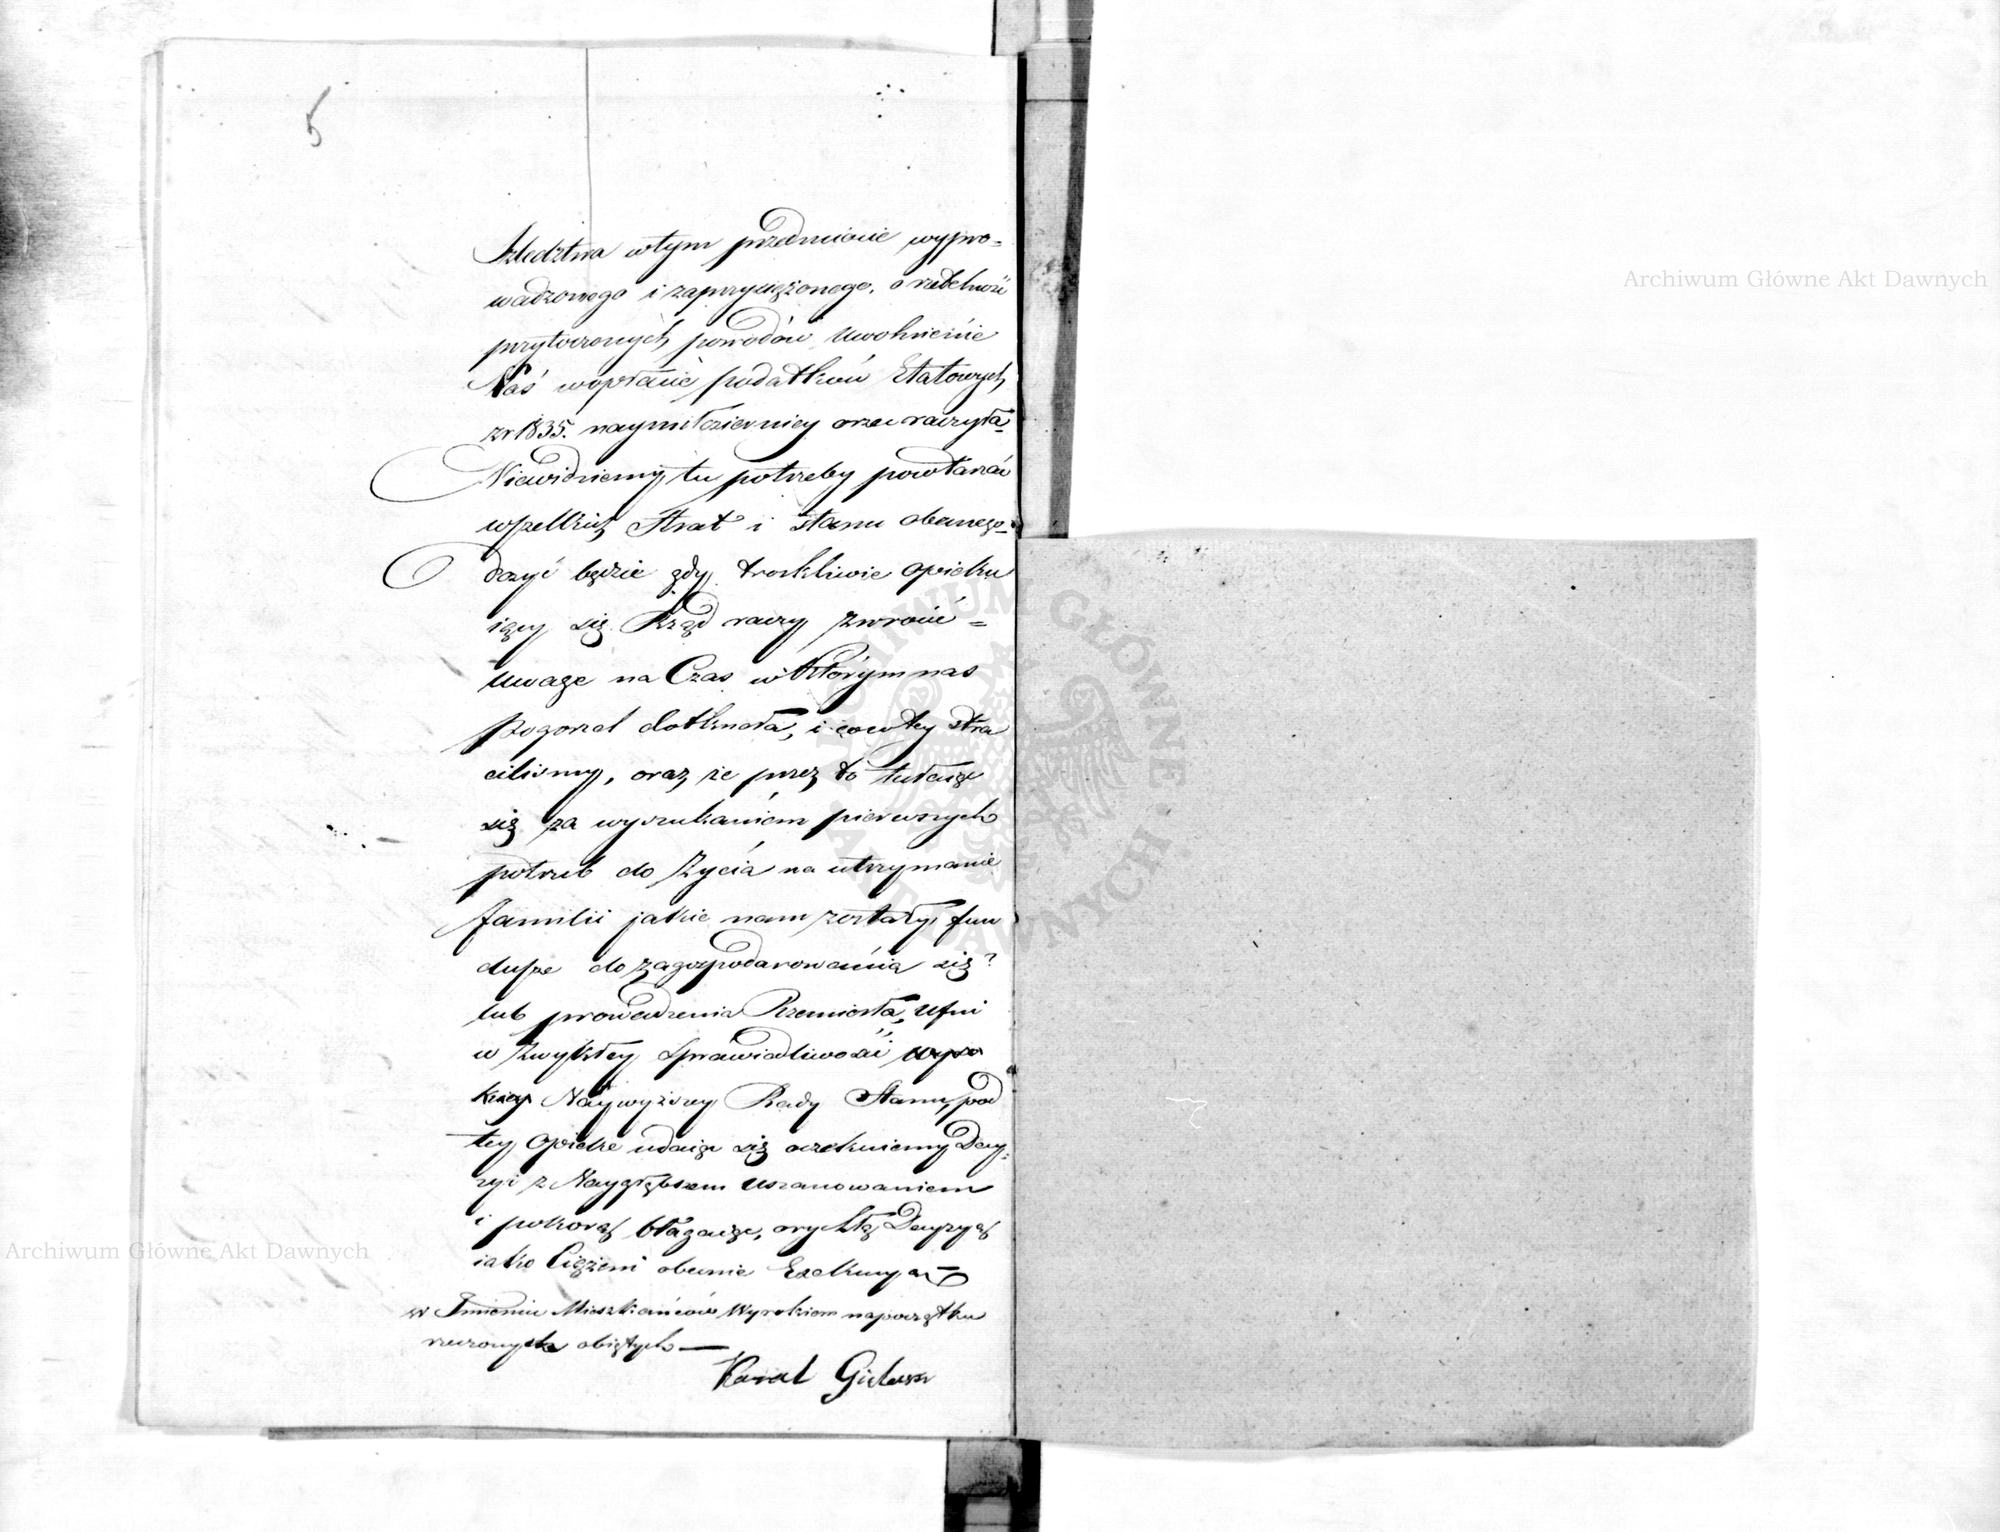 5
Szledztwa wtym przedmiocie wypro=
wadzonego i zaprzysiężonego, o rzetelności
przytoczonych powodów uwolnienie
Nas wopłacie podatków Etatowych
zr 1835. naymiłosierniey orzec raczyła
Niewidziemy tu potrzeby powtarzać
wszelkich Strat i stanu obecnego
dosyć będzie gdy troskliwie opieku
iący się Rząd raczy zwrócić =
uwagę na Czas w którym nas
pogorzel dotknęła, i cowtey stra
ciliśmy, oraz że przez to tułaiąc
się za wyszukaniem pierwszych
potrzeb do życia na utrzymanie
familii jakie nam zostały fun
dusze do zagospodarowania się?
lub prowadzenia Rzemiosła, ufni
w zwykłey sprawiedliwości wyso
kiey Naywyższey Rady Stanu, pod
tey opiekę udaiąc się oczekuiemy Decy=
zyi z Naygłębszem uszanowaniem
i pokorą błagaiąc, orychłą Decyzyą
iako Ciężeni obecnie Exekucyą
w Imieniu Mieszkańców Wyrokiem napoczątku
rzeczonych obiętych —
Karol
Archiwum Główne Akt Dawnych
Archiwum Główne Akt Dawnych
ARCHIWUM GŁÓWNE AKT DAWNYCH